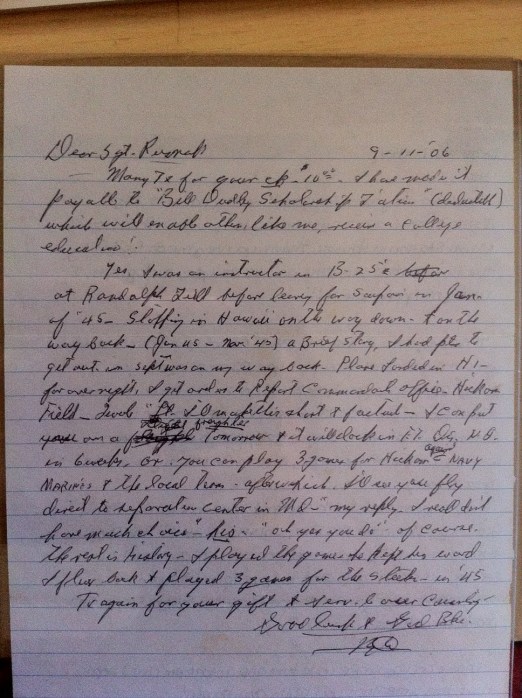 Dear Sgt. 9-11-'06
Many Tx for your ck $10.00. I have made it
payall to "Bill Dudley Scholarship F'ation" (deductible)
which will enable others, like me, receive a college
education.
Yes, I was an instructor in B-25's
at Randolph Field before leaving for Saipan in Jan.
of '45 - Stopping in Hawaii on the way down - & on the
way back - (Jan 45 - Nov '45) a Brief story, I had pts to
get out in Sept was on my way back - Plane landed in HI -
for overnight, I got orders to Report Commandant office - Hickam
Field - "Lt. I'll make this short & factual - I can put
you on a freighter Tomorrow & it will dock in
in 6 weeks, or, you can play 3 games for Hickam against Navy
Marines & the local Team - after which I'll see you fly
direct to separation center in Md - " my reply - I really don't
have much choice" - his - "oh yes you do" of course.
The rest is history - I played the games he kept his word
I flew back & played 3 games for the Steelers - in '45
Tx again for your gift & serv. to our Country -
Good luck & God Bls.
BD